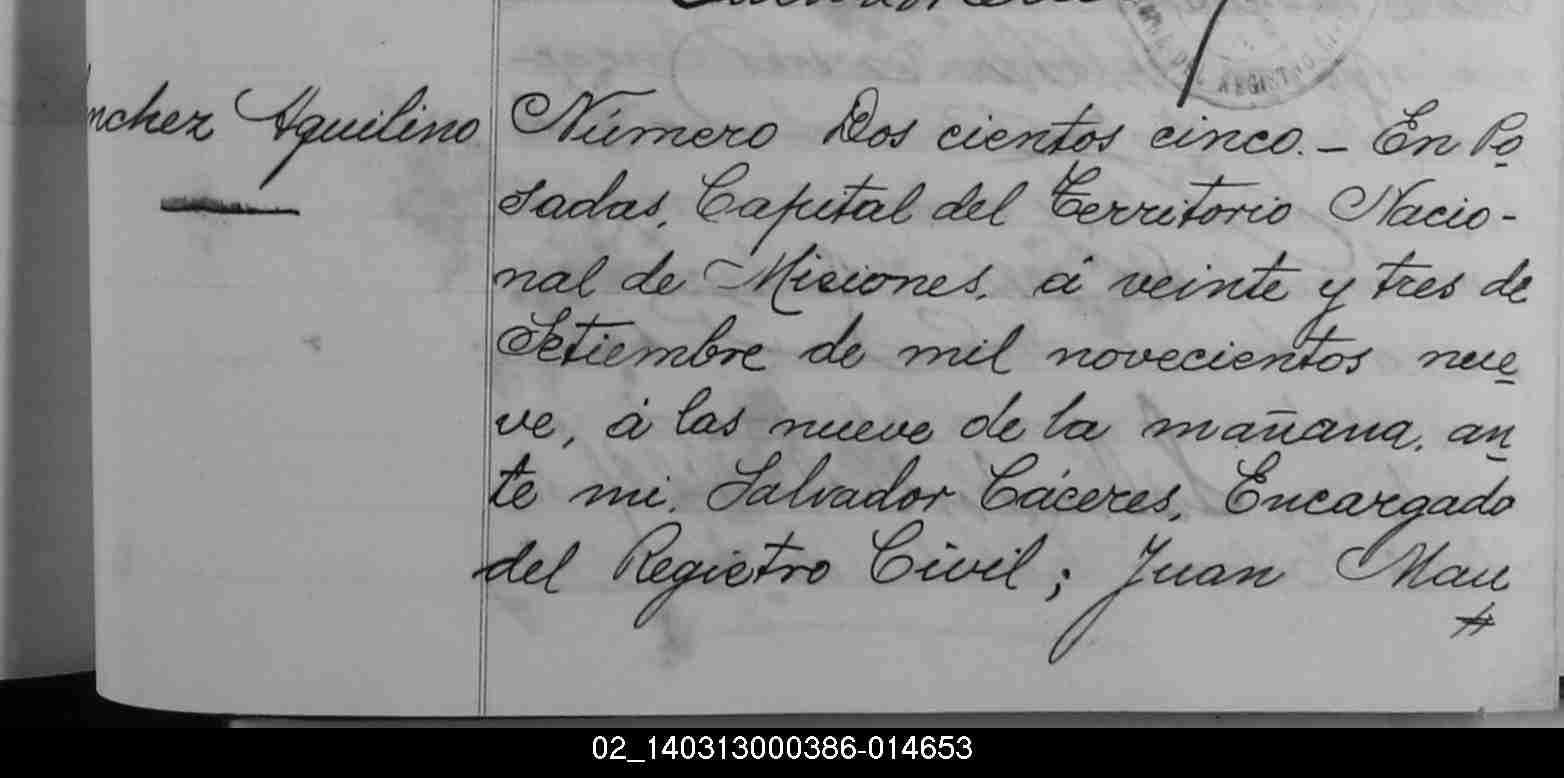 nchez Aquilino
Número Dos cientos cinco. - En Po
sadas, Capital del Territorio Nacio-
nal de Misiones, á veinte y tres de
Setiembre de mil novecientos nue
ve, á las nueve de la mañana, an
te mi, Salvador Cáceres, Encargado
del Registro Civil; Juan Mau
02_140313000386-014653